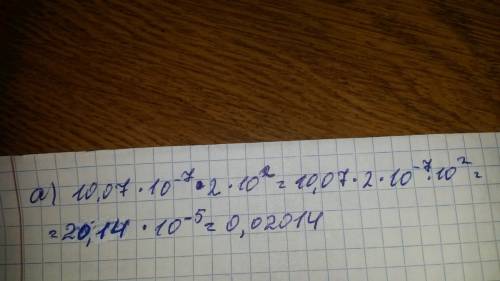 а) 10,07 · 10⁻⁷ · 2 · 10² = 10,07 · 2 · 10⁻⁷ · 10² =
= 20,14 · 10⁻⁵ = 0,02014